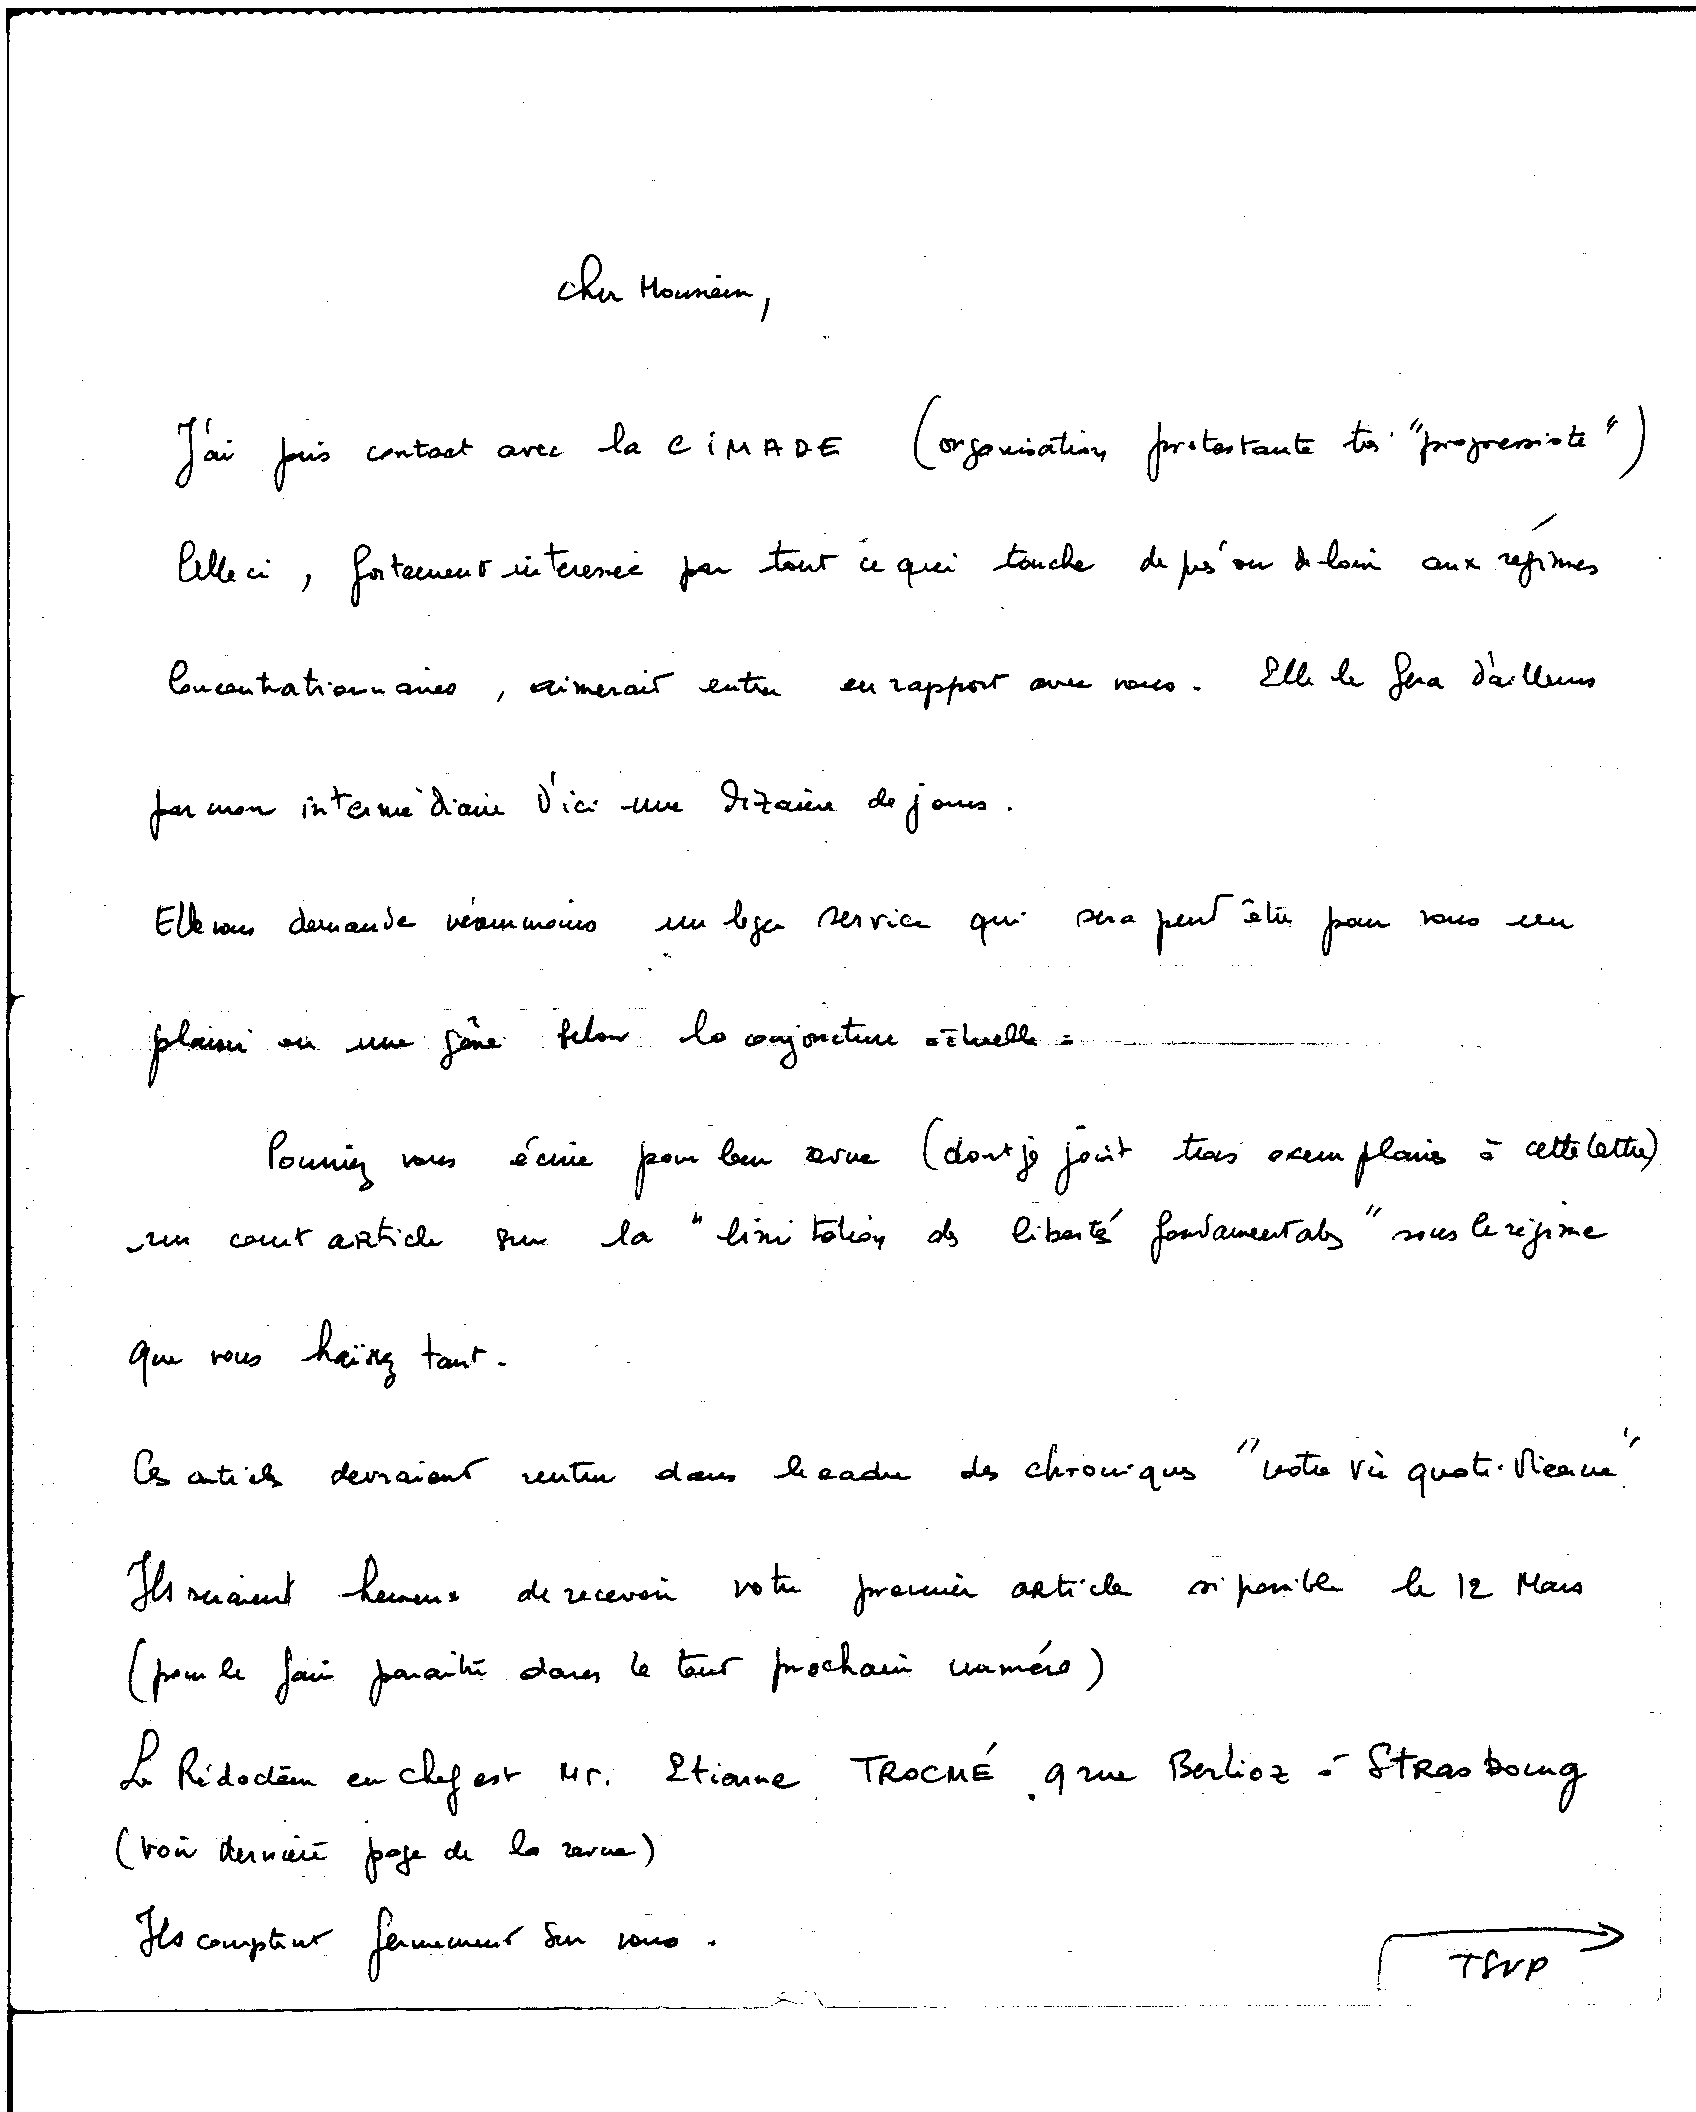 Cher Monsieur,
J'ai pris contact avec la CIMADE (organisation protestante très "progressiste")
Celle ci, fortement interessée par tout ce qui touche de près ou de loin aux régimes
Concentrationnaires, aimerait entrer en rapport avec vous. Elle le fera d'ailleurs
par mon intermédiaire d'ici une dizaine de jours.
Elle vous demande néanmoins un léger service qui sera peut être pour vous un
plaisir ou une gêne selon la conjoncture actuelle :
Pourriez vous écrire pour leur revue (dont je joint trois exemplaires à cette lettre)
un court article sur la "limitation des libertés fondamentales" sous le régime
que vous haïssez tant.
Ces articles devraient rentrer dans le cadre des chroniques "votre vie quotidienne"
Ils seraient heureux de recevoir votre premier article si possible le 12 Mars
(pour le faire paraître dans le tout prochain numéro)
Le Rédacteur en chef est Mr. Etienne TROCMÉ 9 rue Berlioz à Strasbourg
(voir dernière page de la revue)
Ils comptent fermement sur vous.
TSVP